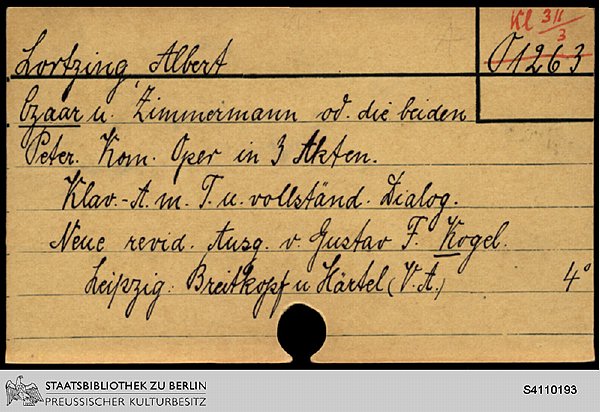 Kl 311/3
O 1263
Lortzing, Albert
Czaar u. Zimmermann od. die beiden
Peter. Kom. Oper in 3 Akten.
Klav.-A. m. T. u. vollständ. Dialog.
Neue revid. Ausg. v. Gustav F. Kogel.
Leipzig: Breitkopf u Härtel (V.A.) 4°
STAATSBIBLIOTHEK ZU BERLIN
PREUSSISCHER KULTURBESITZ
S4110193